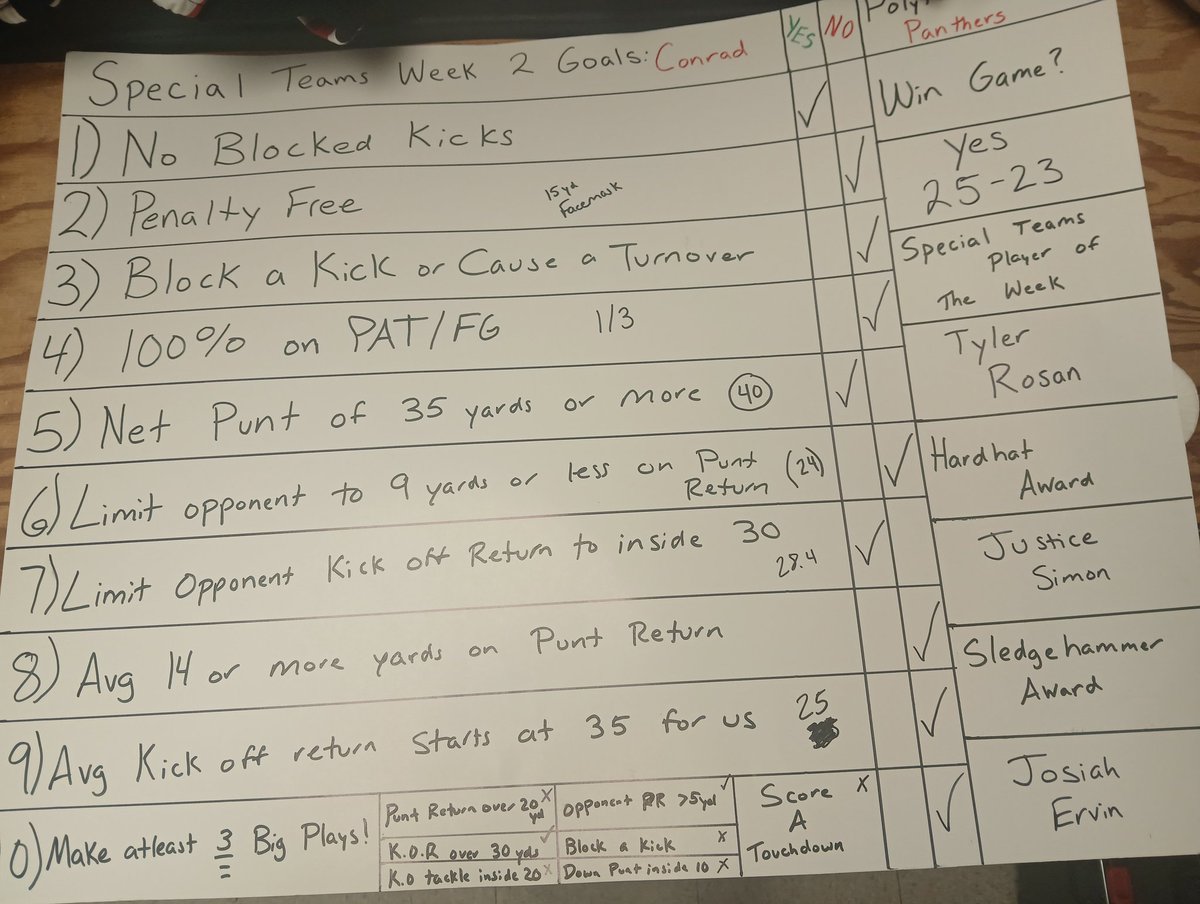 Special Teams Week 2 Goals: Conrad YES NO
Panthers
1) No Blocked Kicks ✓
Win Game?
2) Penalty Free 15yd Facemask ✓
Yes
25-23
3) Block a Kick or Cause a Turnover ✓
Special Teams
Player of
The Week
4) 100% on PAT/FG 1/3 ✓
Tyler
Rosan
5) Net Punt of 35 yards or more 40 ✓
6) Limit opponent to 9 yards or less on Punt Return (24) ✓
Hardhat
Award
7) Limit Opponent Kick off Return to inside 30 28.4 ✓
Justice
Simon
8) Avg 14 or more yards on Punt Return ✓
Sledgehammer
Award
9) Avg Kick off return Starts at 35 for us 25 ✓
Josiah
Ervin
0) Make atleast 3 Big Plays! ✓
Punt Return over 20 yd X
K.O.R over 30 yds ✓
K.O tackle inside 20 X
Opponent PR >5yd ✓
Block a Kick X
Down Punt inside 10 X
Score X
A
Touchdown